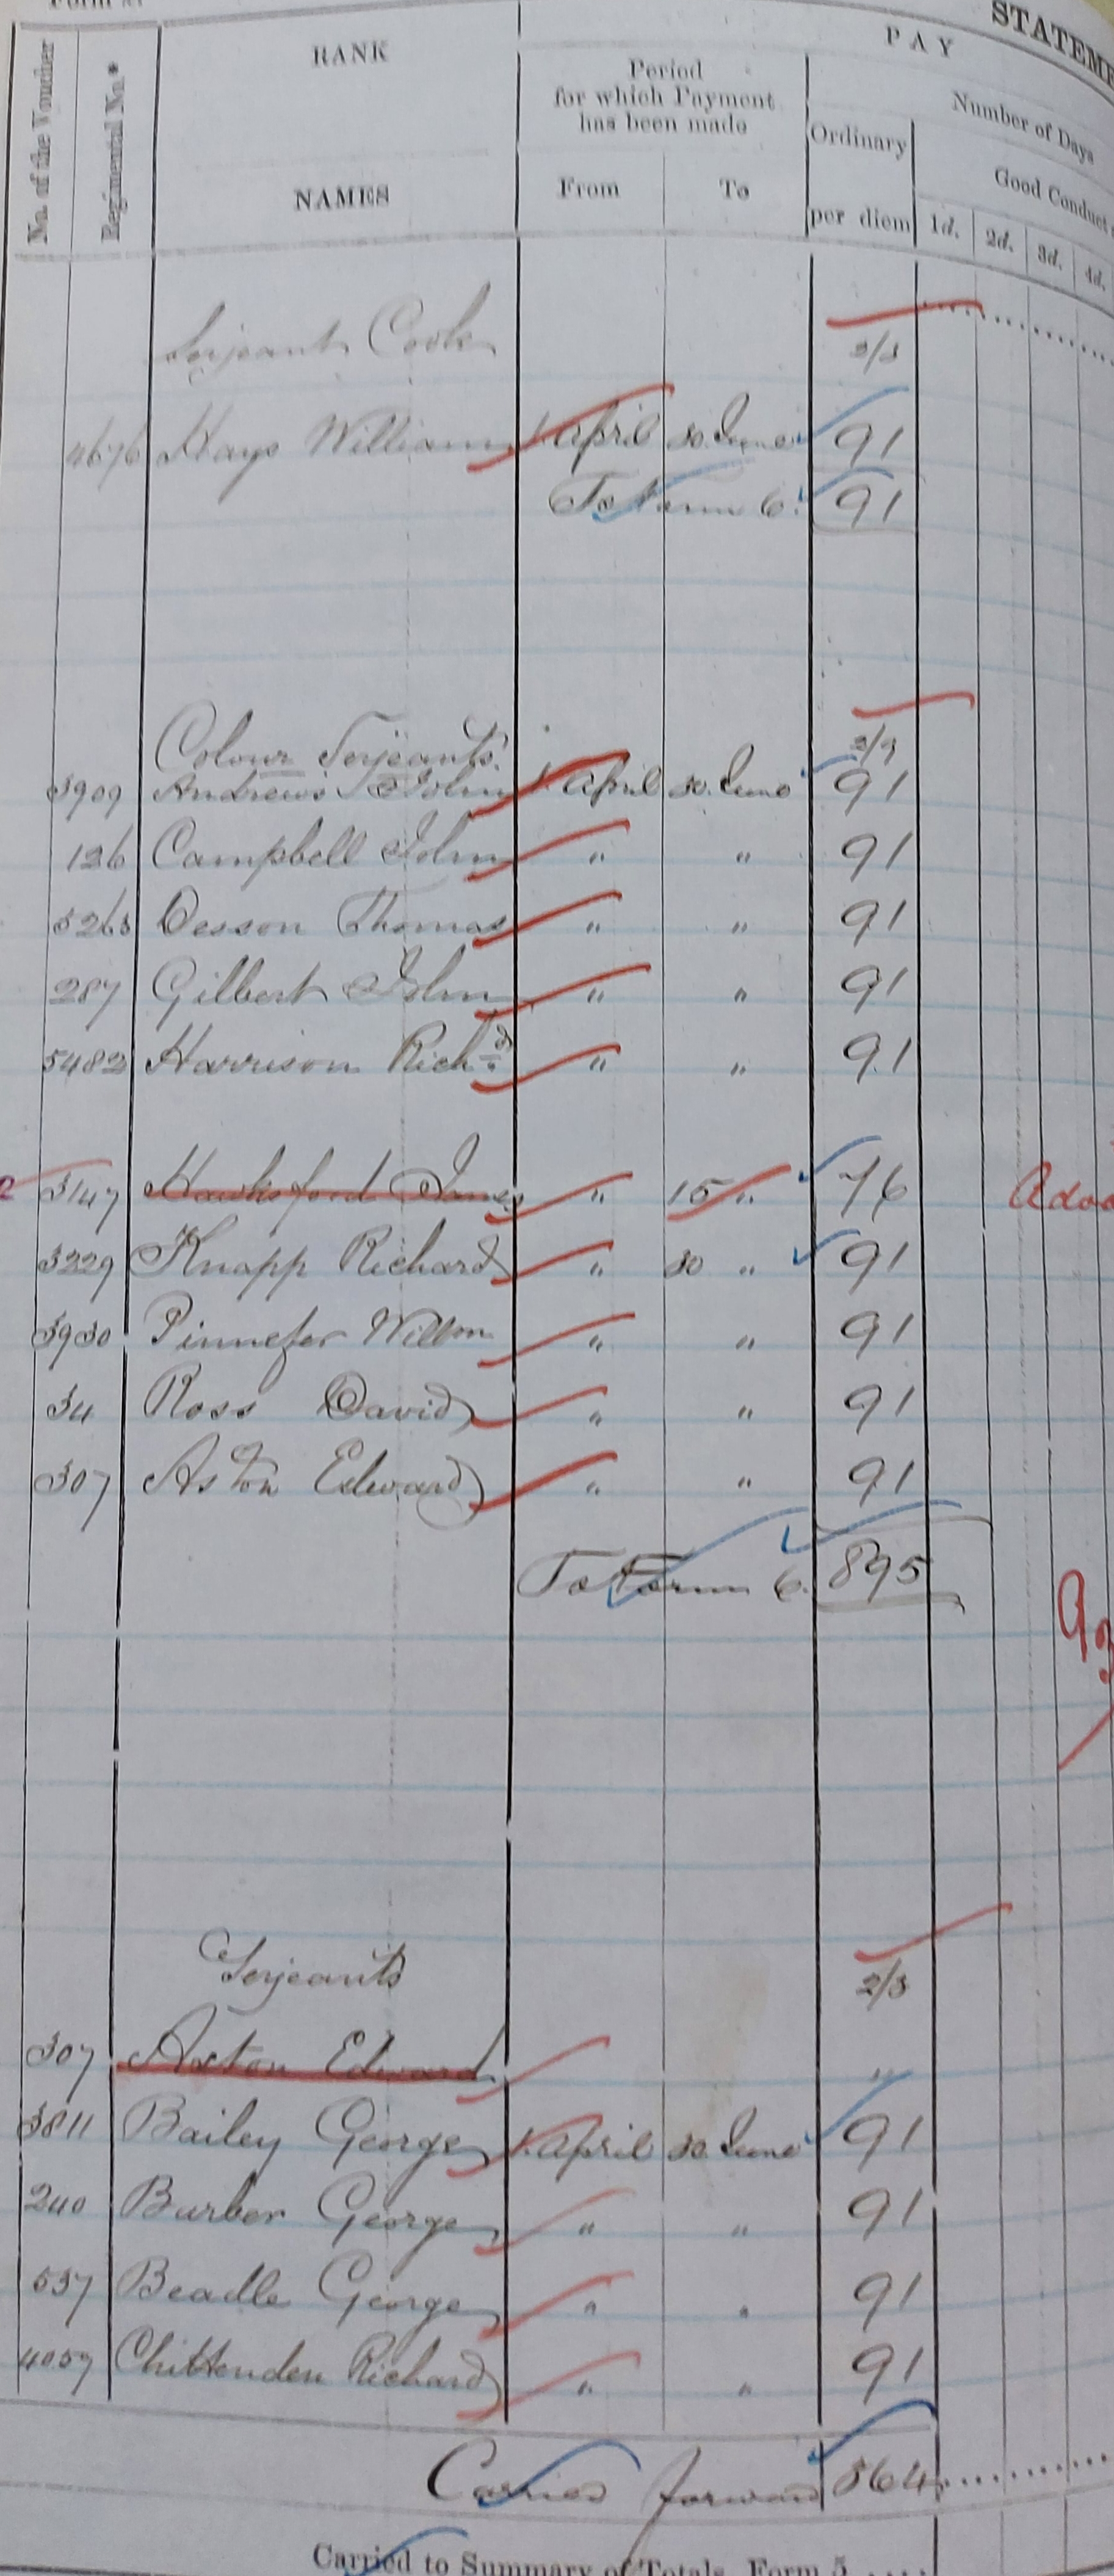 STATEME
No. of the Voucher
Regimental No.*
RANK
NAMES
Period
for which Payment
has been made
From To
PAY
Ordinary
per diem
Number of Days
Good Conduct
1d. 2d. 3d. 4d.
Serjeant Cook
4676 Hays William 1 April 30 June 91
To Form 6. 91
Colour Serjeants
3909 Andrews John 1 April 30 June 91
126 Campbell John " " 91
5263 Desson Thomas " " 91
287 Gilbert John " " 91
5482 Harrison Richd " " 91
3147 Hawksford James " 15 " 76
3229 Knapp Richard " 30 " 91
3930 Pinnefer Willm " " 91
34 Ross David " " 91
307 Aston Edward " " 91
To Form 6. 895
Serjeants 2/3
307 Axton Edward "
3811 Bailey George 1 April 30 June 91
240 Burber George " " 91
537 Beadle George " " 91
4057 Chittenden Richard " " 91
Carried forward 364
Carried to Summary of Totals, Form 5